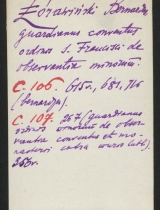 Żórawiński Bernardus
guardianus conventus
ordinis S. Francisci de
observantia minorum.
C. 106 615v., 681, 716
(bernardza).
C. 107. 267 (guardianus
ordinis minorum de obser-
vantia conventus et mo-
nasterii extra muros